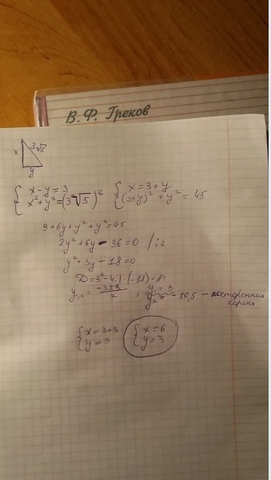 В. Ф. Греков
x 3√5
y
{ x - y = 3 { x = 3 + y
{ x² + y² = (3√5)² { (3+y)² + y² = 45
9 + 6y + y² + y² = 45
2y² + 6y - 36 = 0 / :2
y² + 3y - 18 = 0
D = 3² - 4·1·(-18) = 81
y₁,₂ = -3±9 / 2 ; y₁ = 3
10,5 - посторонний
корень
{ x = 3+3 { x = 6
{ y = 3 { y = 3